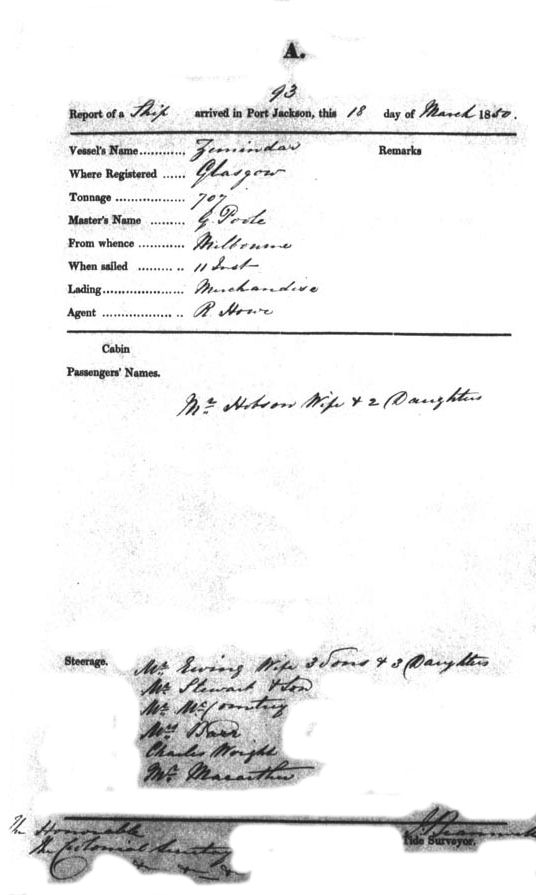 A.
93
Report of a Ship arrived in Port Jackson, this 18 day of March 1850.
Vessel's Name............ Zemindar Remarks
Where Registered ...... Glasgow
Tonnage .................. 707
Master's Name ......... G. Poole
From whence ............ Milbourne
When sailed ......... .. 11 Inst
Lading..................... Merchandise
Agent .................. .. R. Howe
Cabin
Passengers' Names.
Mr Hobson Wife & 2 Daughters
Steerage. Mr Ewing Wife 3 Sons & 3 Daughters
Mr Stewart & Son
Mr
Mrs Barr
Charles Wright
Mr Macarthur
The Honourable
The Colonial Secretary
Tide Surveyor.